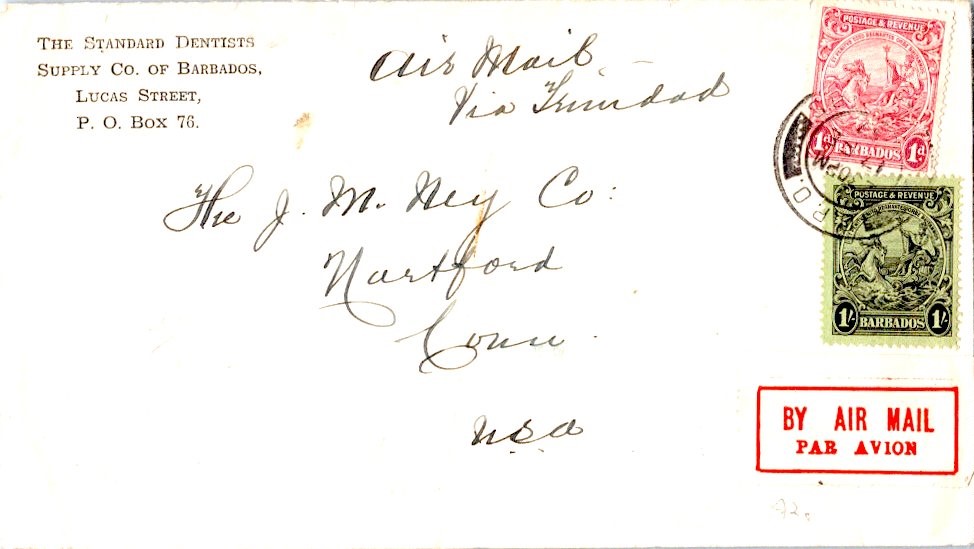 THE STANDARD DENTISTS
SUPPLY CO. OF BARBADOS,
LUCAS STREET,
P. O. BOX 76.
Air Mail
Via Trinidad
The J. M. Ney Co:
Hartford
Conn.
USA
POSTAGE & REVENUE
1d BARBADOS 1d
30PM
P.O.
POSTAGE & REVENUE
1/- BARBADOS 1/-
BY AIR MAIL
PAR AVION